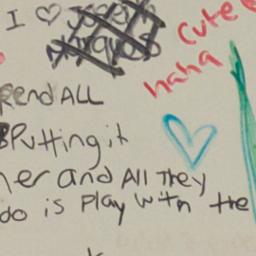 I ♡
cute
haha
rend ALL
Putting it
her and All They
do is Play with the